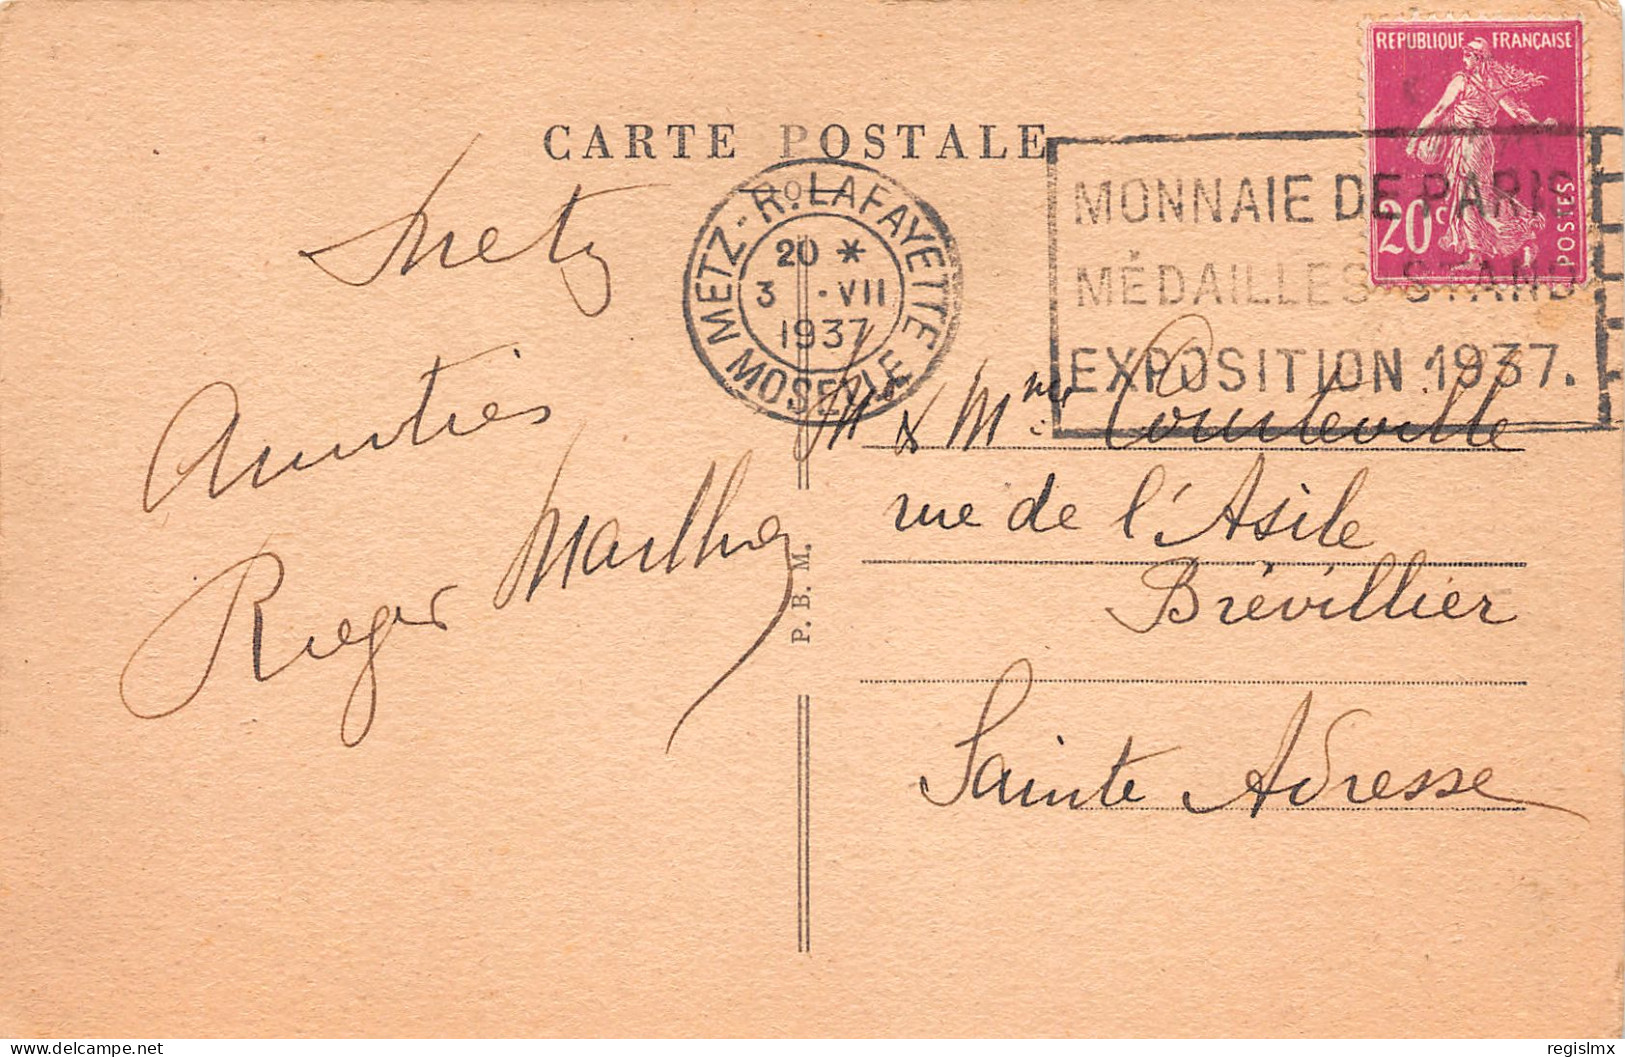 REPUBLIQUE FRANÇAISE
20c
POSTES
CARTE POSTALE
METZ-R.LAFAYETTE
20 *
3 .VII
1937
MOSELLE
MONNAIE DE PARIS
MÉDAILLES STAND
EXPOSITION 1937.
Metz
Amitiés
Roger Marthe
P. B. M.
M & Mme Courteville
rue de l'Asile
Brévillier
Sainte Adresse
Delcampe.net
regislmx